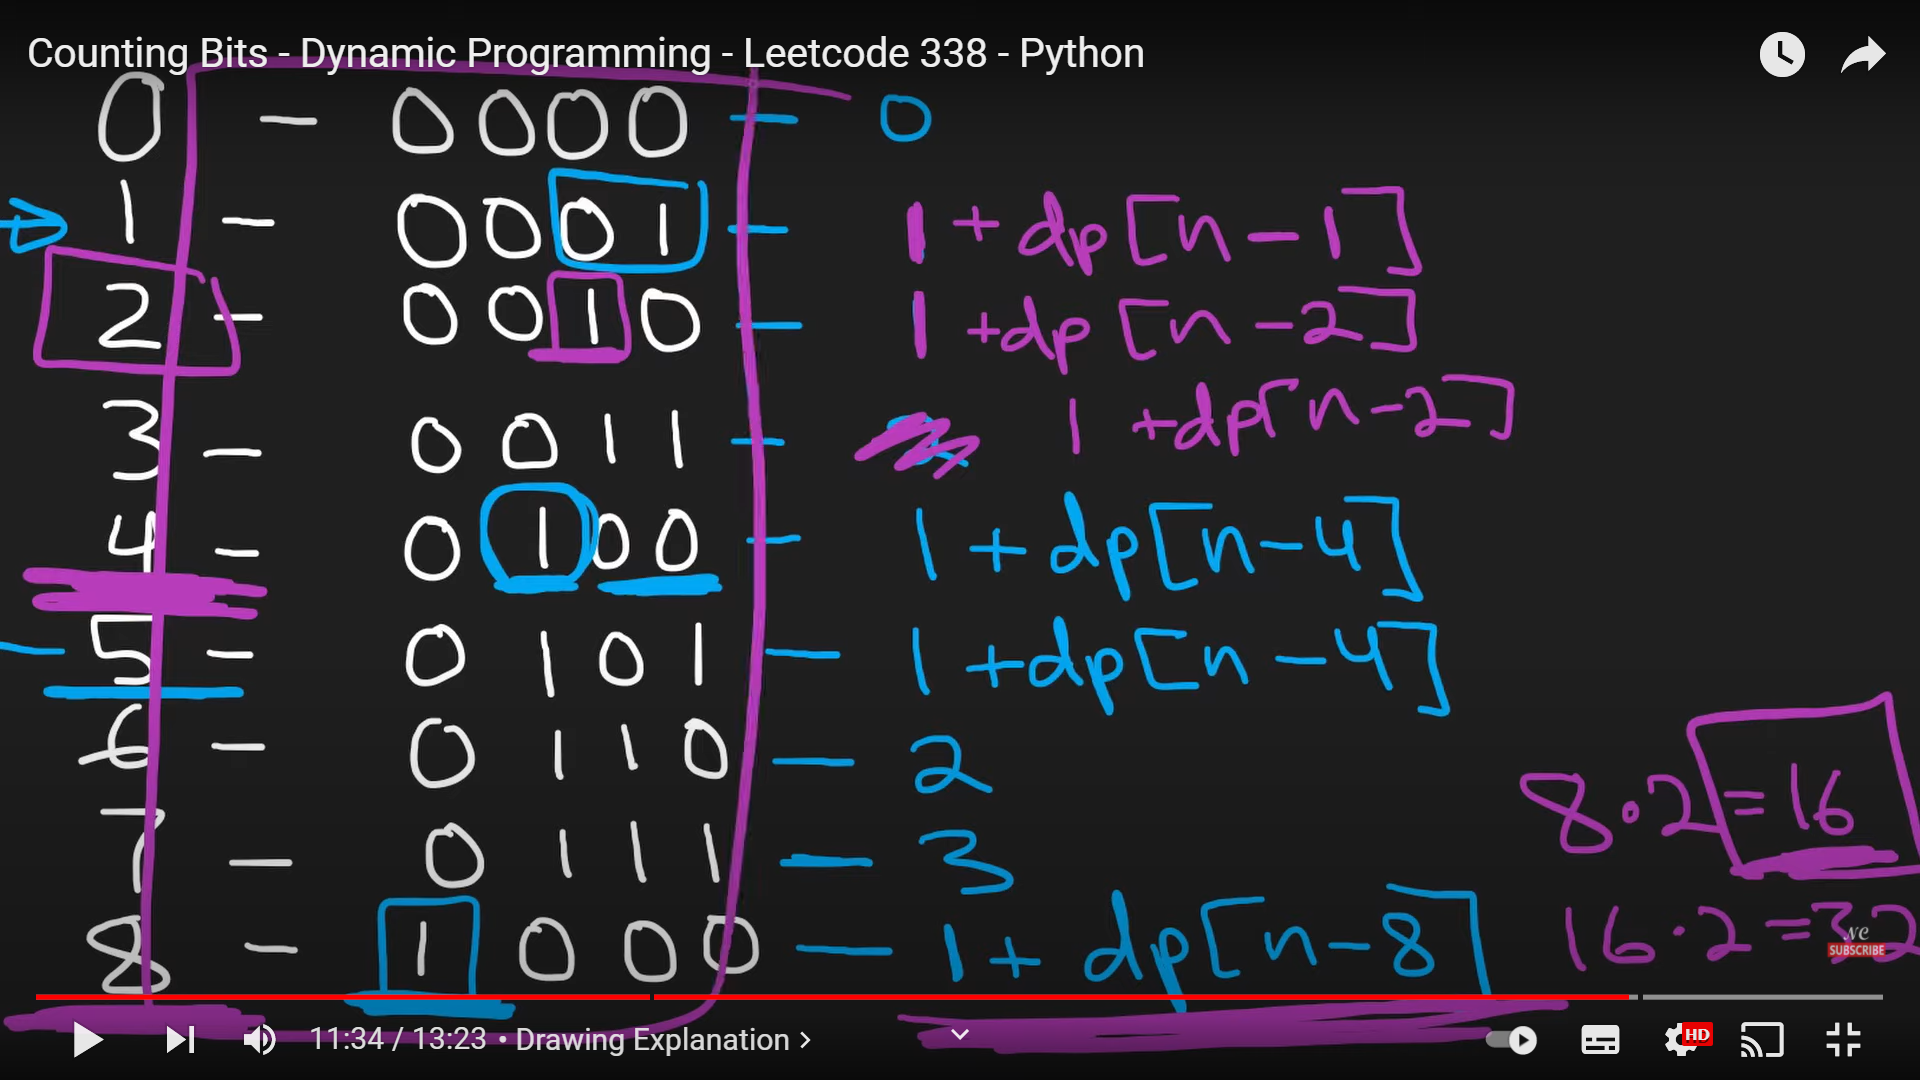 Counting Bits - Dynamic Programming - Leetcode 338 - Python
0 - 0000 - 0
1 - 0001 - 1 + dp[n-1]
2 - 0010 - 1 + dp[n-2]
3 - 0011 - 1 + dp[n-2]
4 - 0100 - 1 + dp[n-4]
5 - 0101 - 1 + dp[n-4]
6 - 0110 - 2
7 - 0111 - 3
8·2 = 16
8 - 1000 - 1 + dp[n-8]
16·2 = 32
NC
SUBSCRIBE
11:34 / 13:23 • Drawing Explanation >
HD